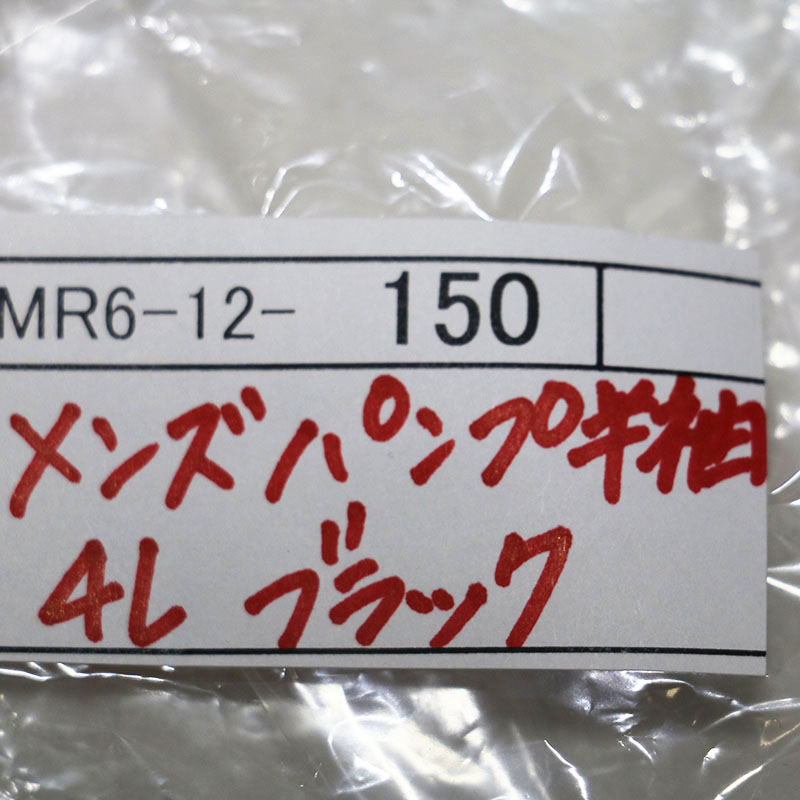 MR6-12- 150
メンズパンプ半袖
4L ブラック